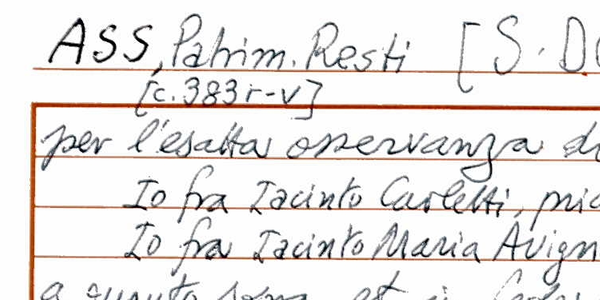 ASS, Patrim. Resti [S. D
[c. 383 r-v]
per l'esatta osservanza di
Io fra Iacinto Carletti, prio
Io fra Iacinto Maria Avign
a quanto sopra et